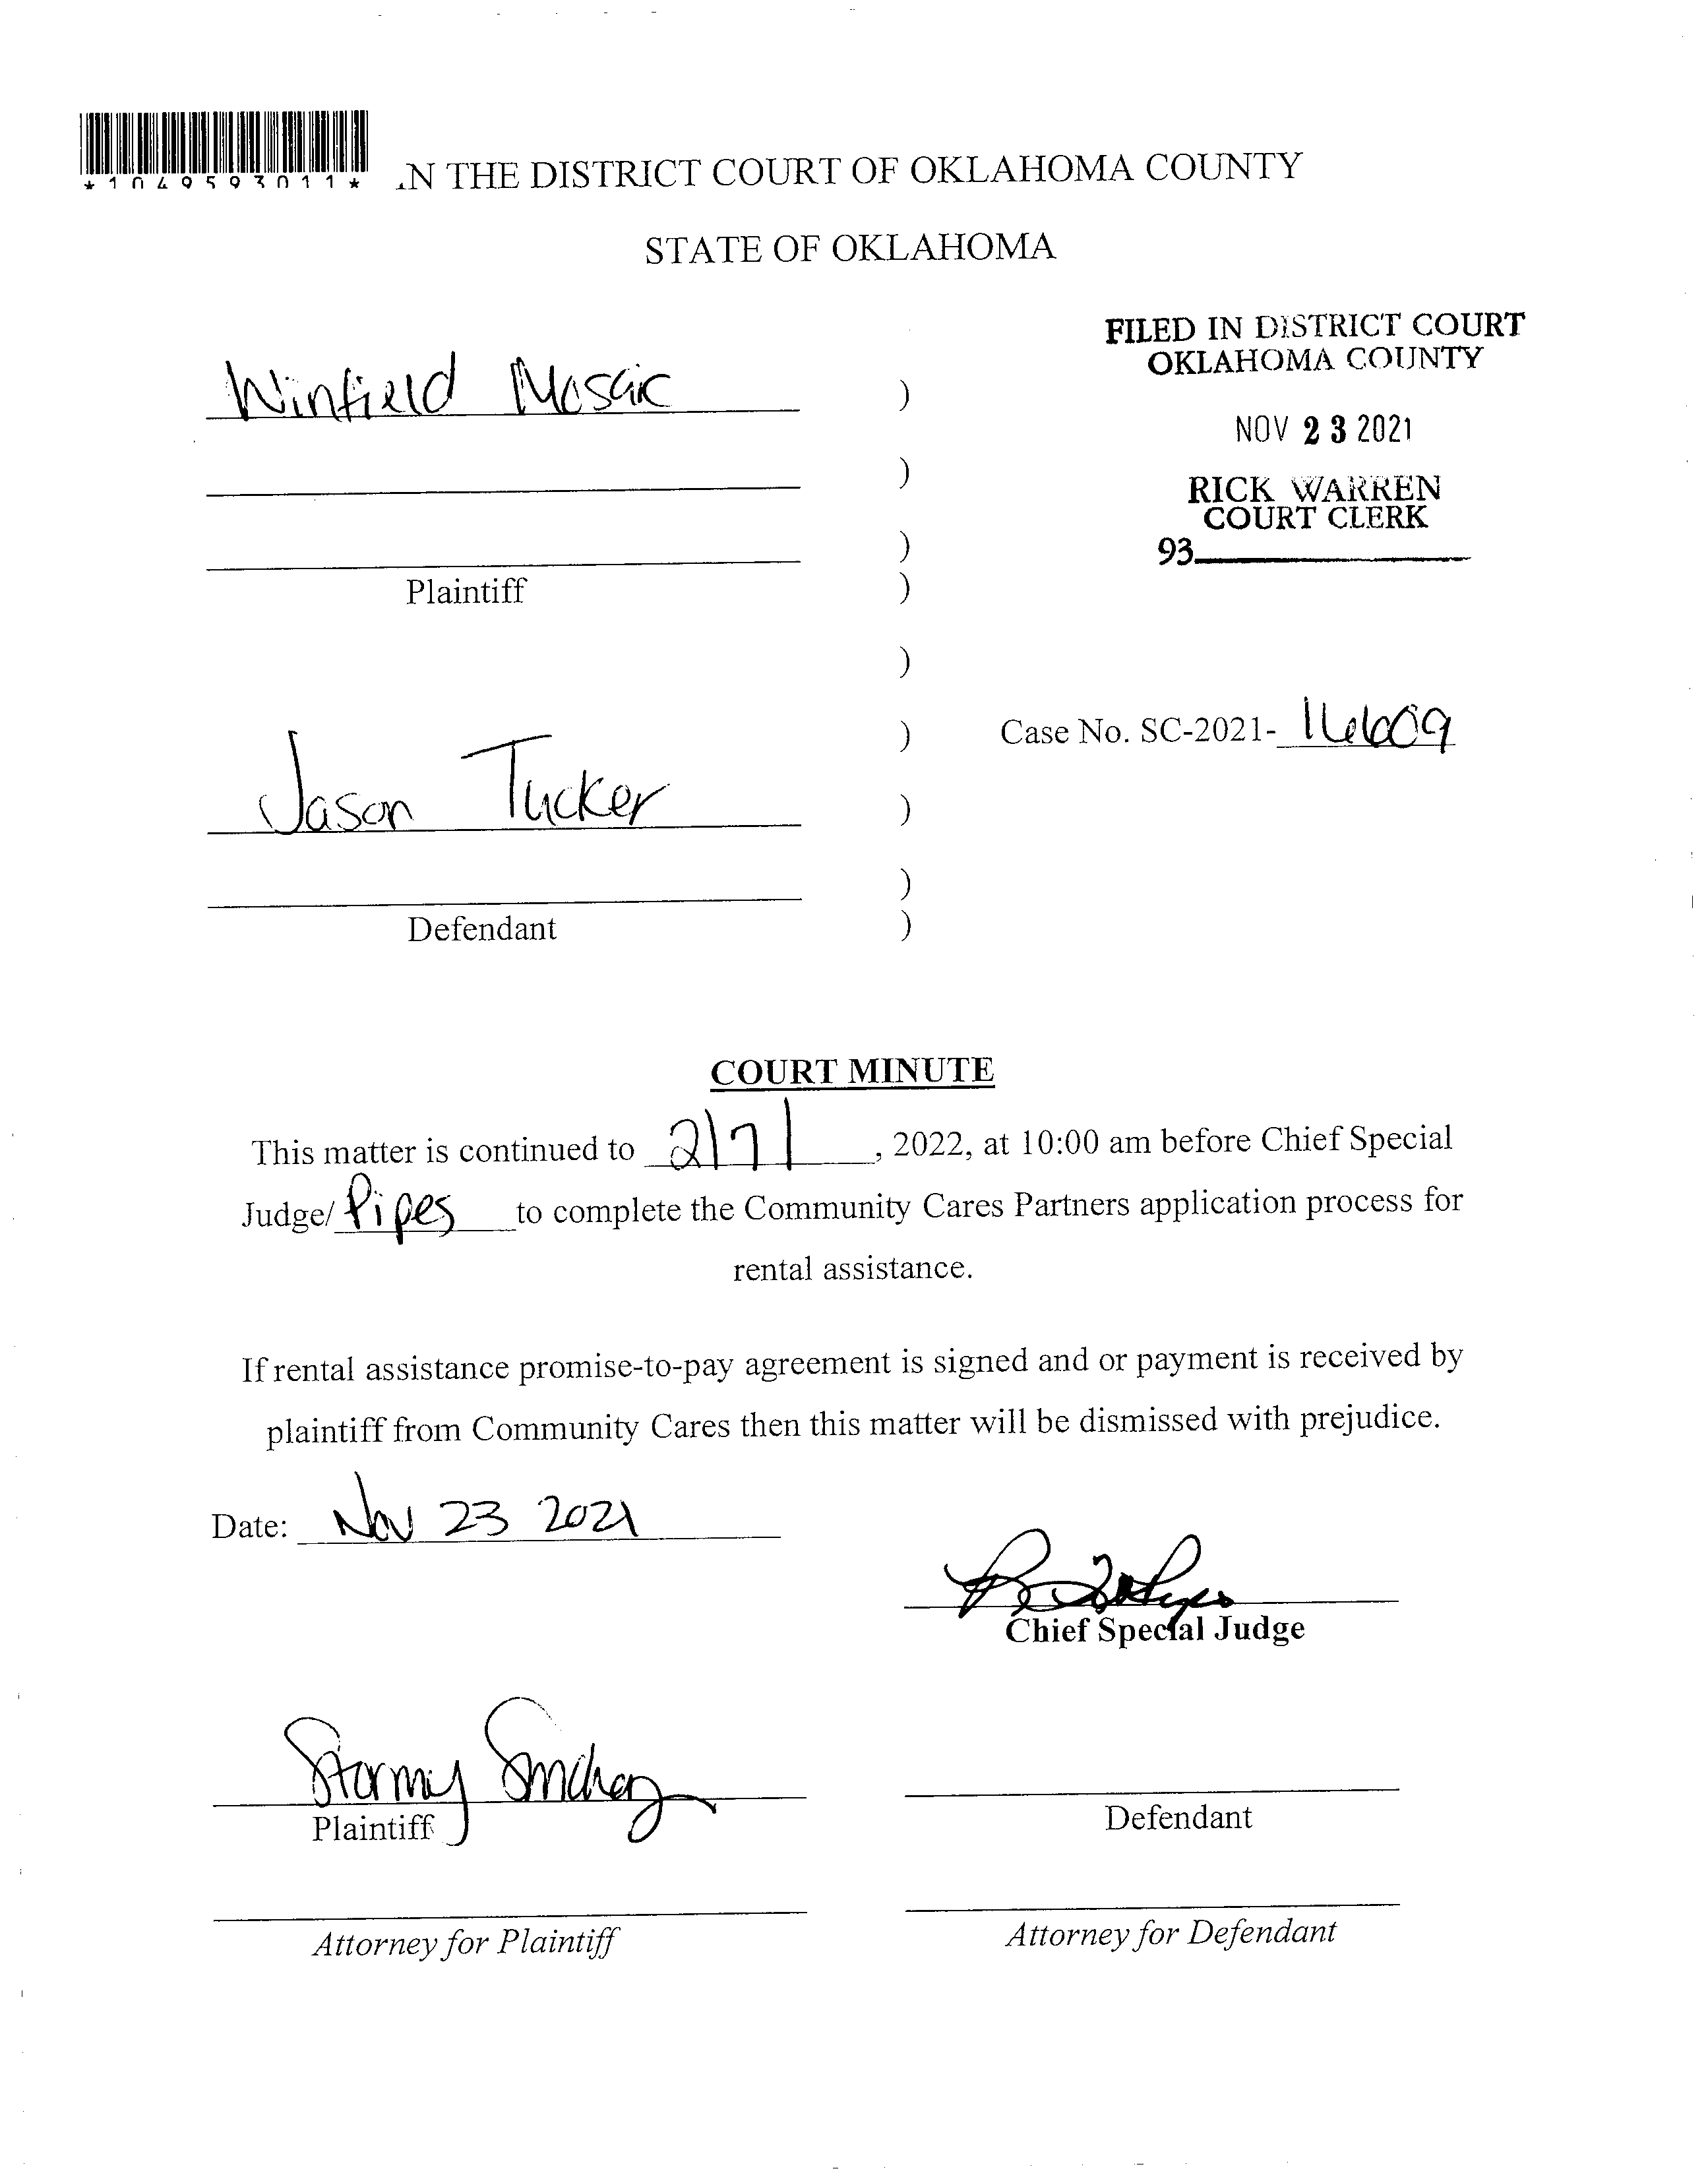 *1049593011*
IN THE DISTRICT COURT OF OKLAHOMA COUNTY
STATE OF OKLAHOMA
FILED IN DISTRICT COURT
OKLAHOMA COUNTY
NOV 23 2021
RICK WARREN
COURT CLERK
93
Winfield Mosaic )
)
)
Plaintiff )
)
) Case No. SC-2021- 16609
Jason Tucker )
)
Defendant )
COURT MINUTE
This matter is continued to 2/7/ , 2022, at 10:00 am before Chief Special
Judge/ Pipes to complete the Community Cares Partners application process for
rental assistance.
If rental assistance promise-to-pay agreement is signed and or payment is received by
plaintiff from Community Cares then this matter will be dismissed with prejudice.
Date: Nov 23 2021
Chief Special Judge
Stormy
Plaintiff
Defendant
Attorney for Plaintiff
Attorney for Defendant